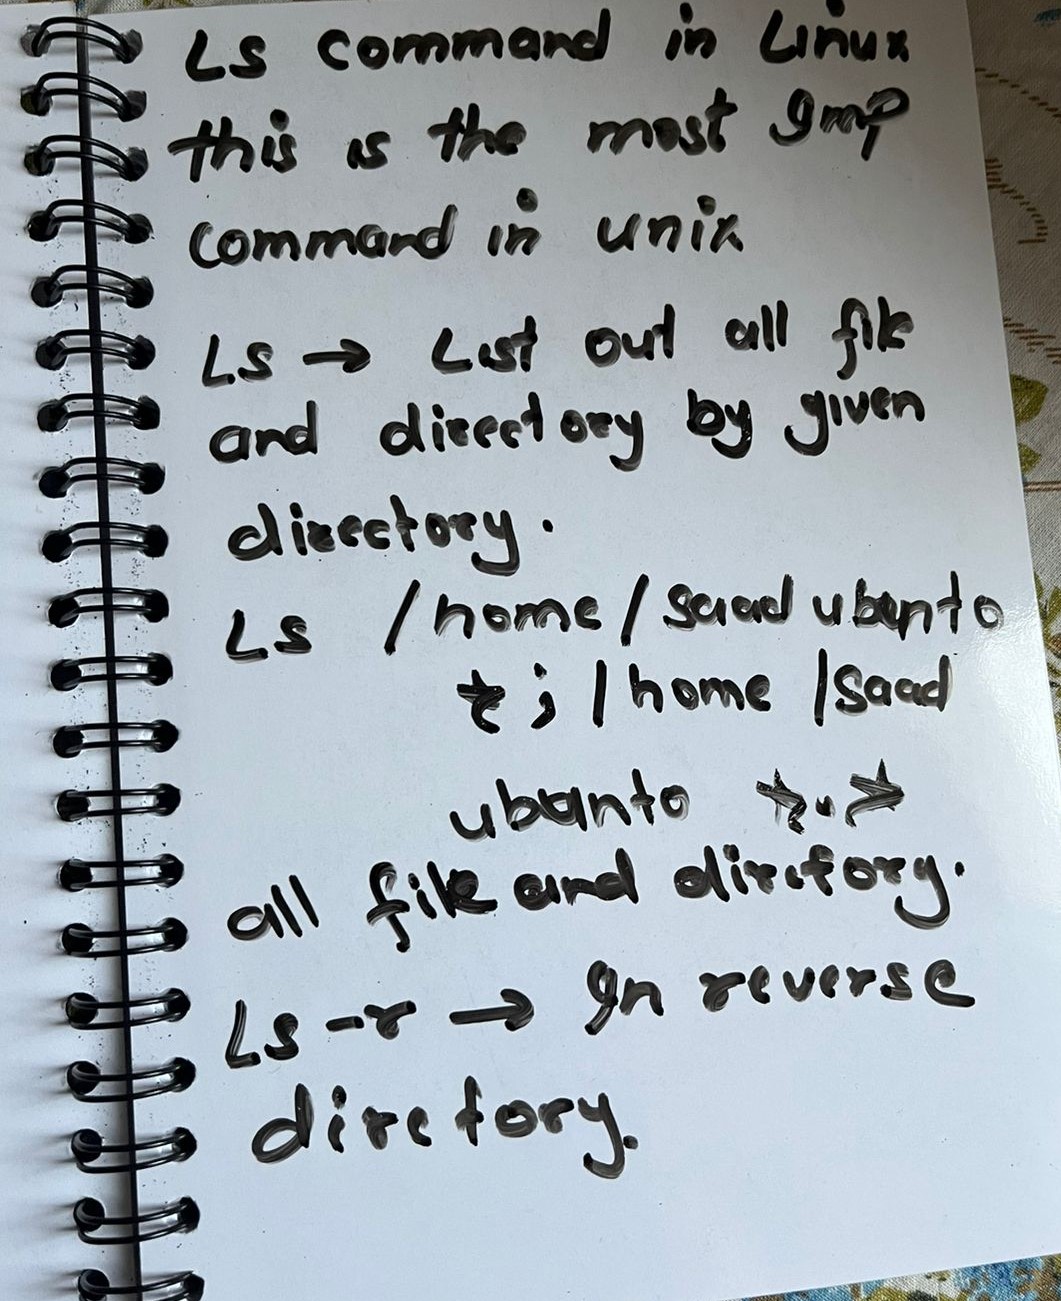 Ls command in Linux
this is the most Imp
command in unix
Ls → List out all file
and directory by given
directory.
Ls /home/saad ubanto
* ; /home /saad
ubanto *.*
all file and directory.
Ls -r → In reverse
directory.